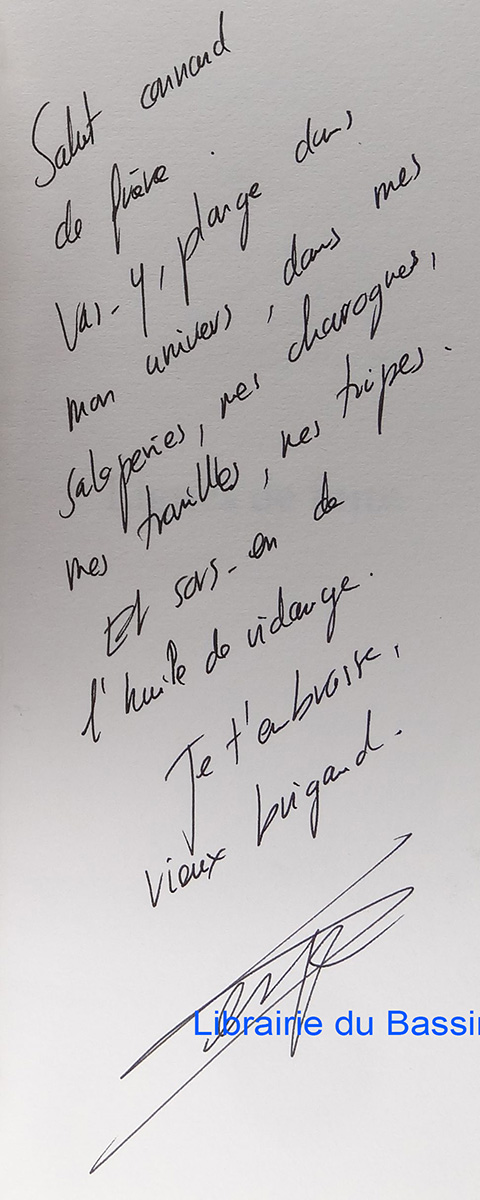 Salut connard
de frère.
Vas-y, plonge dans
mon univers, dans mes
saloperies, mes charognes,
mes trouilles, mes tripes.
Et sors-en de
l'huile de vidange.
Je t'embrasse,
vieux brigand.
Librairie du Bassin